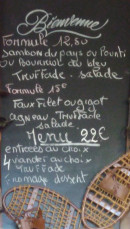 Bienvenue
Formule 12,50
Jambon du pays ou Pounti
ou Bourriol au bleu
Truffade - salade
Formule 15€
Faux filet ou gigot
agneau Truffade
salade
Menu 22€
entrées au choix
4 viandes au choix
Truffade
fromage dessert